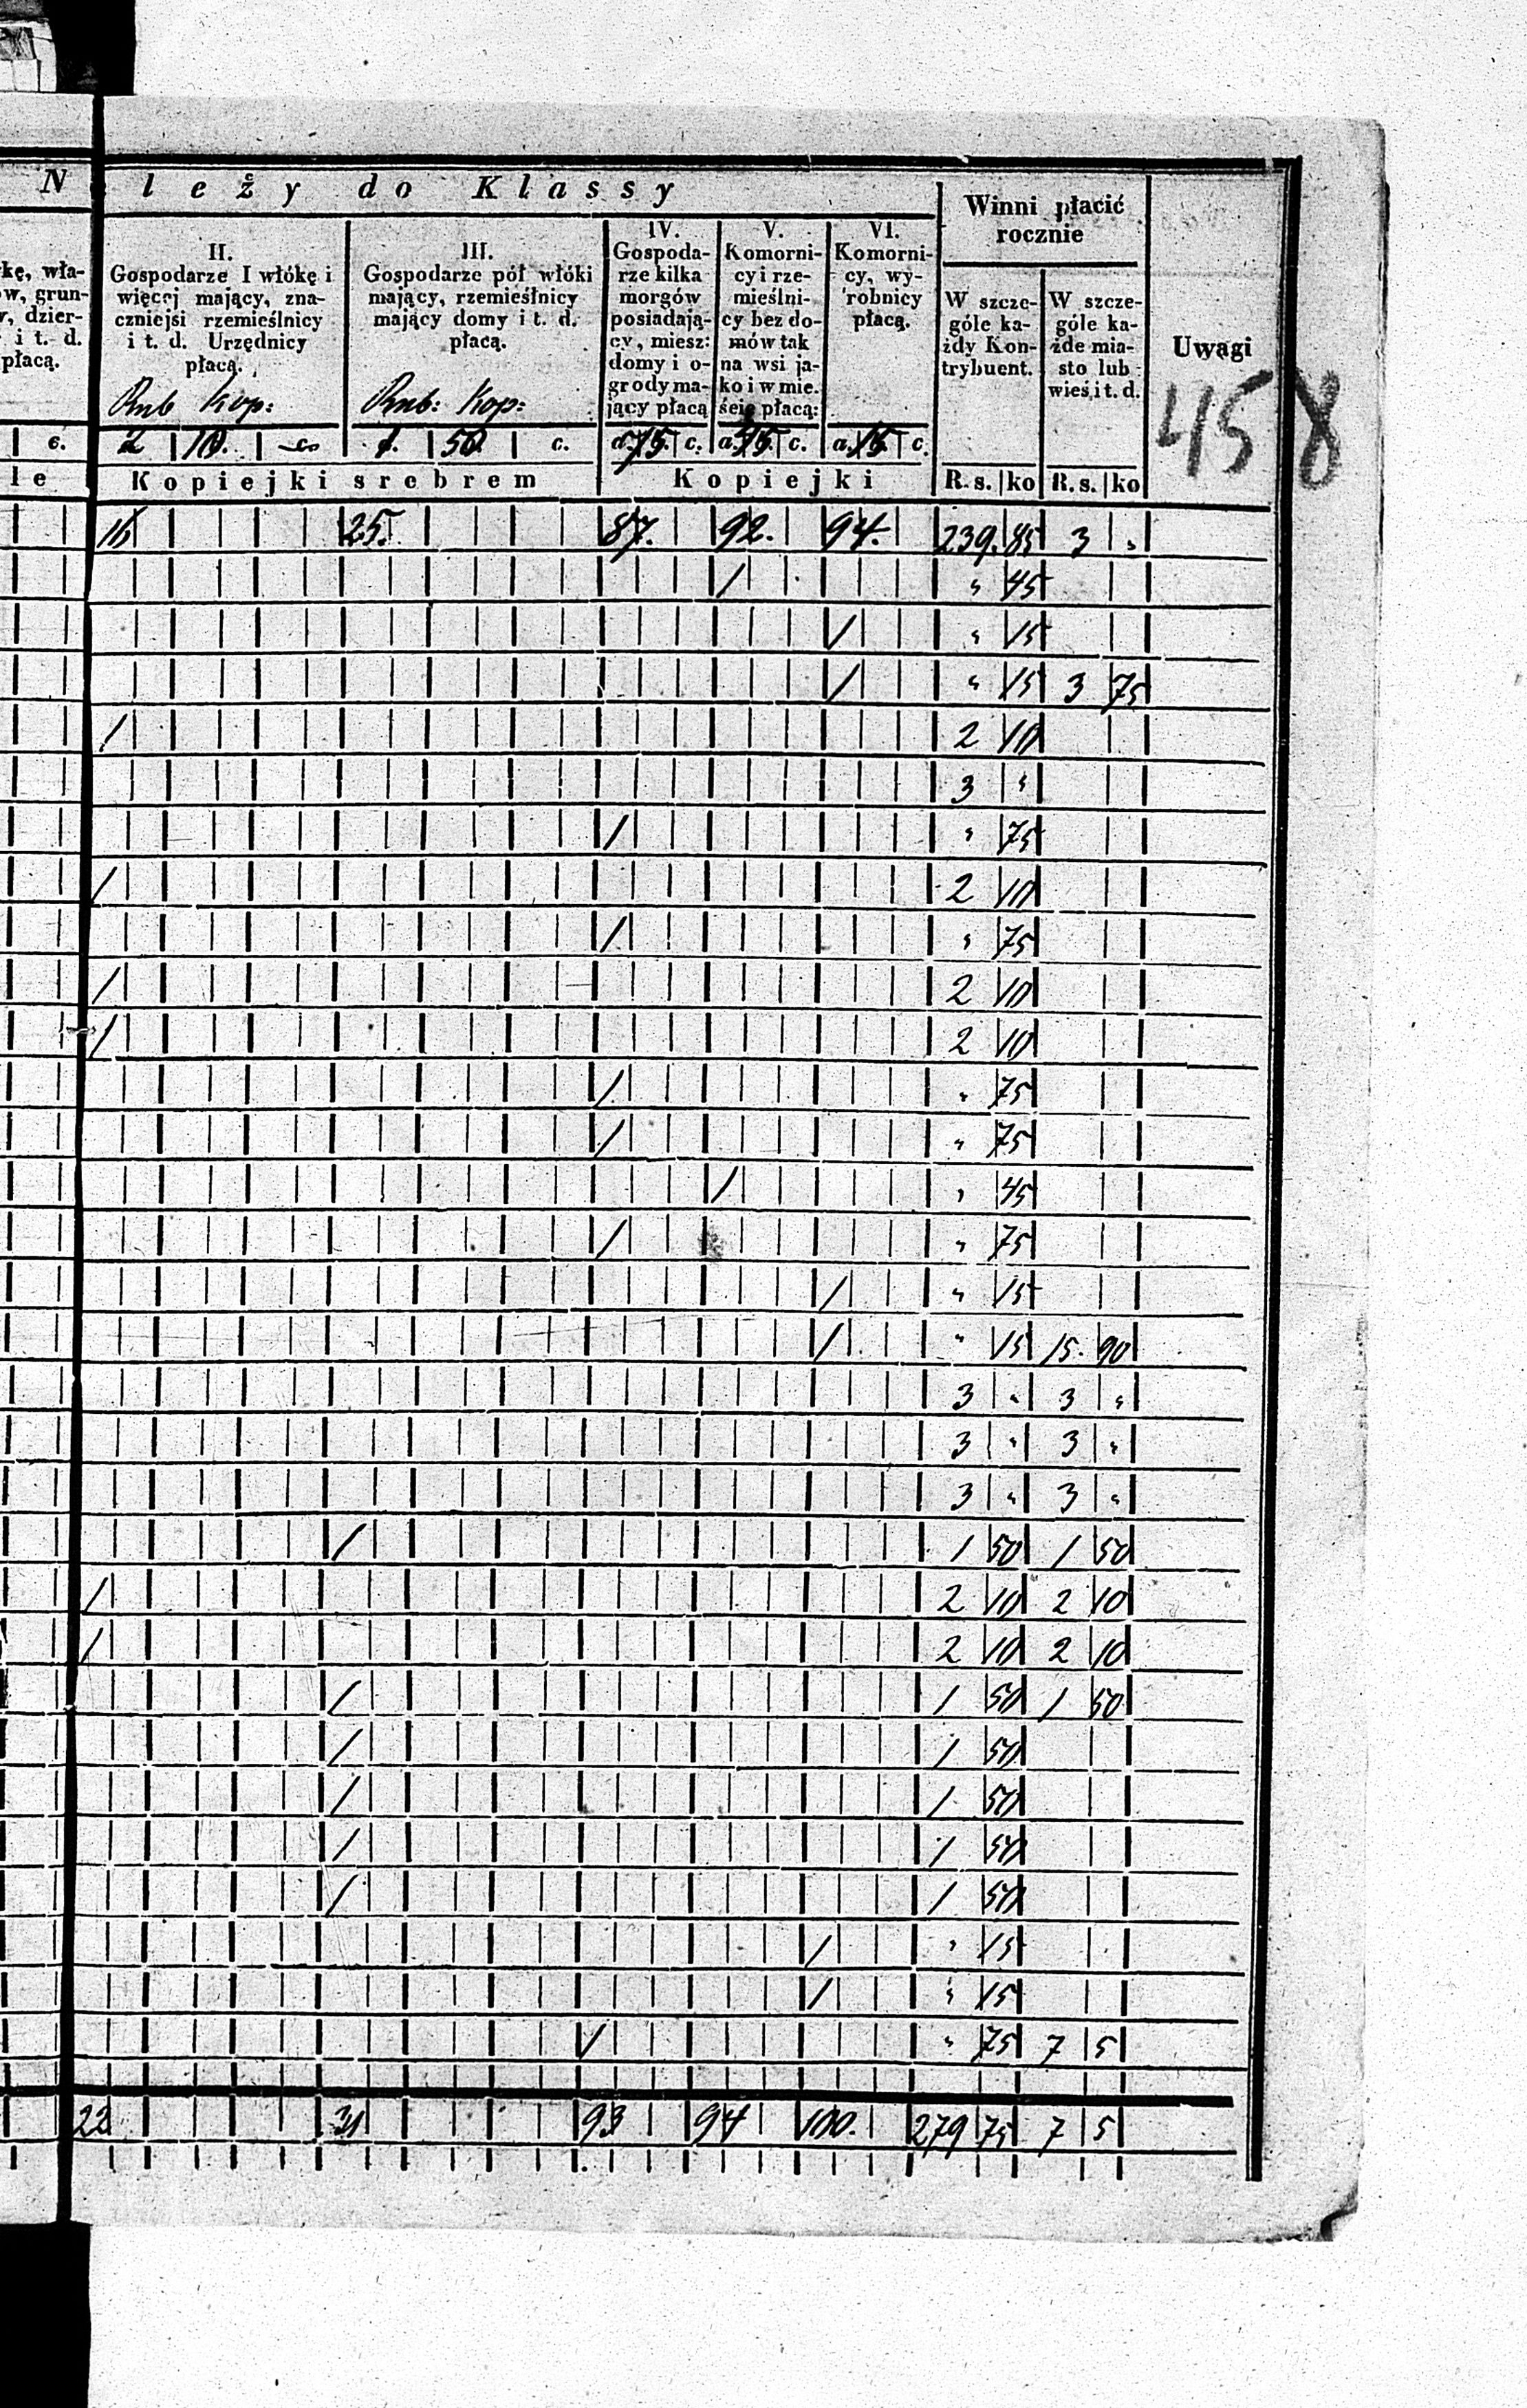 N leży do Klassy
kę, wła-
ów, grun-
v, dzier-
i t. d.
płacą.
c.
le
II.
Gospodarze I włókę i
więcej mający, zna-
czniejsi rzemieślnicy
i t. d. Urzędnicy
płacą.
Rub Kop:
2 10. c.
III.
Gospodarze pół włóki
mający, rzemieślnicy
mający domy i t. d.
płacą.
Rub: Kop:
1. 50 c.
Kopiejki srebrem
IV.
Gospoda-
rze kilka
morgów
posiadają-
cy, miesz:
domy i o-
grody ma-
jący płacą
75. c.
V.
Komorni-
cy i rze-
mieślni-
cy bez do-
mów tak
na wsi ja-
ko i w mie.
ście płacą:
a. 45. c.
VI.
Komorni-
cy, wy-
robnicy
płacą.
a. 15. c.
Kopiejki
Winni płacić
rocznie
W szcze-
góle ka-
żdy Kon-
trybuent.
R. s. ko
W szcze-
góle ka-
żde mia-
sto lub
wieś, i t. d.
R. s. ko
Uwagi
458
16 25. 87. 92. 94. 239. 85 3 "
/ " 45
/ " 15
/ " 15 3 75
/ 2 10
3 "
/ " 75
/ 2 10
/ " 75
/ 2 10
/ 2 10
/ " 75
/ " 75
/ " 45
/ " 75
/ " 15
/ " 15 15. 90
3 " 3 "
3 " 3 "
3 " 3 "
/ 1 50 1 50
/ 2 10 2 10
/ 2 10 2 10
/ 1 50 1 50
/ 1 50
/ 1 50
/ 1 50
/ 1 50
/ " 15
/ " 15
/ " 75 7 5
22 31 93 94 100. 279 75 7 5